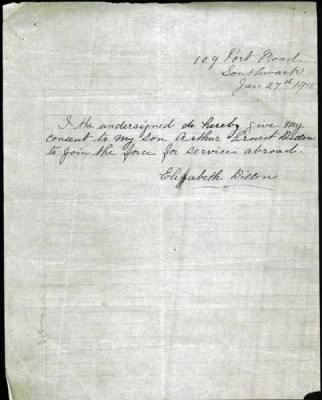 109 Port Road
Southwark
Jan 27th 1915
I the undersigned do hereby give my
consent to my son Arthur Ernest Dillon
to join the force for services abroad.
Elizabeth Dillon